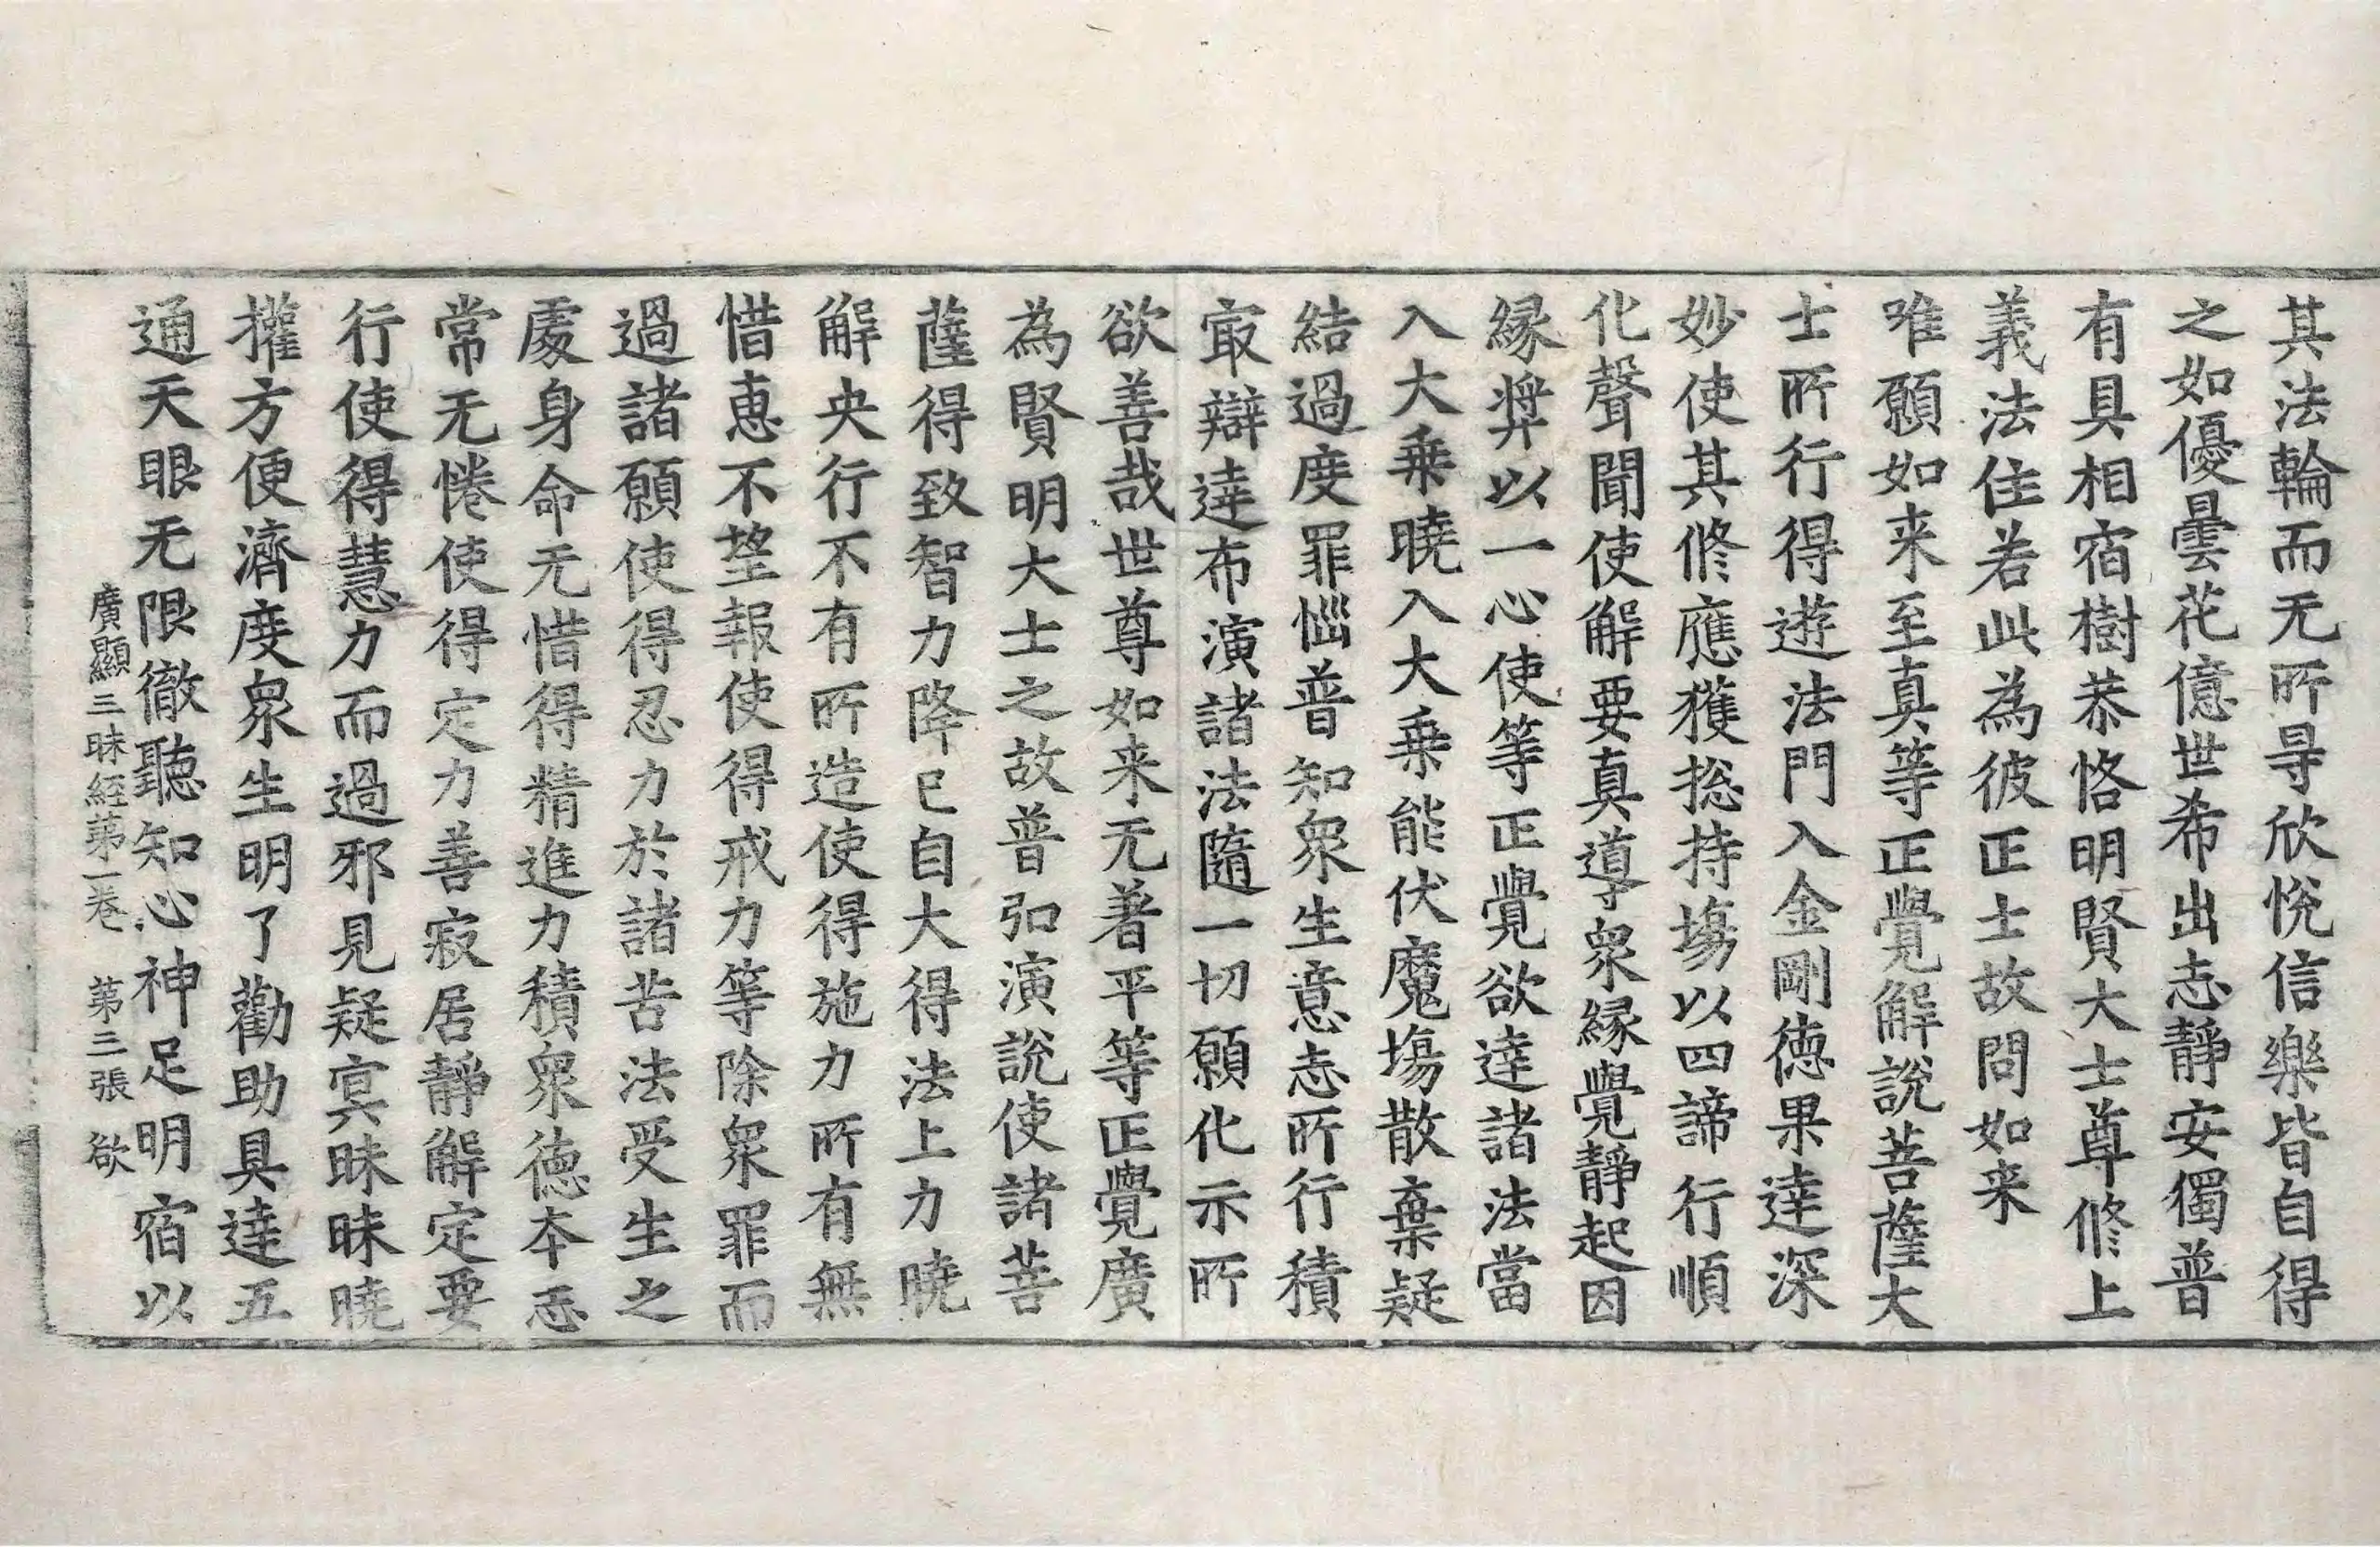 其法輪而无所㝵欣悅信樂皆自得
之如優曇花億世希出志靜安獨普
有具相宿樹恭恪明賢大士尊修上
義法住若此為彼正士故問如来
唯願如来至真等正覺解說菩薩大
士所行得遊法門入金剛德果達深
妙使其修應獲捴持場以四諦行順
化聲聞使解要真導衆緣覺靜起因
緣弉以一心使等正覺欲達諸法當
入大乗曉入大乗能伏魔場散棄疑
結過度罪惱普知衆生意志所行積
㝡辯達布演諸法隨一切願化示所
欲善哉世尊如来无著平等正覺廣
為賢明大士之故普弘演說使諸菩
薩得致智力降已自大得法上力曉
解央行不有所造使得施力所有無
惜惠不望報使得戒力等除衆罪而
過諸願使得忍力於諸苦法受生之
處身命无惜得精進力積衆德本忘
常无惓使得定力善寂居靜解定要
行使得慧力而過邪見疑冥昧昧曉
攉方便濟度衆生明了勸助具達五
通天眼无限徹聽知心神足明宿以
廣顯三昧經第一卷 第三張 欲